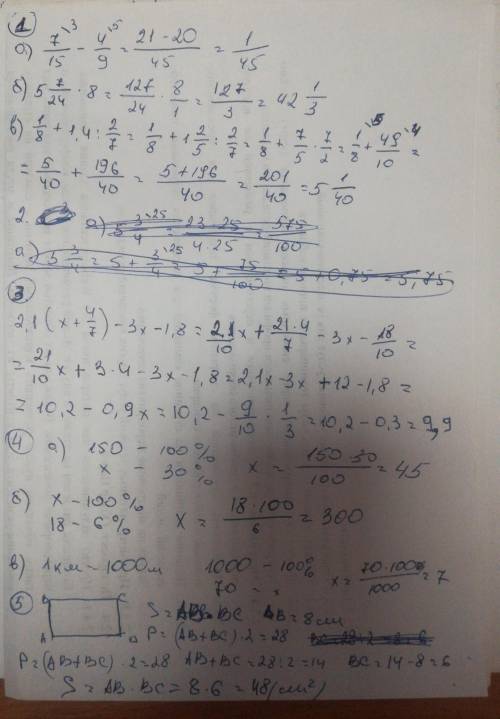 1
а) 7/15 - 4/9 = 21-20/45 = 1/45
б) 5 7/24 · 8 = 127/24 · 8/1 = 127/3 = 42 1/3
в) 1/8 + 1,4 : 2/7 = 1/8 + 1 2/5 : 2/7 = 1/8 + 7/5 · 7/2 = 1/8 + 49/10 =
= 5/40 + 196/40 = 5+196/40 = 201/40 = 5 1/40
2.
а) 5 3/4 = 23·25/4·25 = 575/100
а) 5 3/4 = 5 + 3/4 = 5 + 75/100 = 5 + 0,75 = 5,75
3
2,1(x + 4/7) - 3x - 1,8 = 21/10 x + 21·4/7 - 3x - 18/10 =
= 21/10 x + 3·4 - 3x - 1,8 = 2,1x - 3x + 12 - 1,8 =
= 10,2 - 0,9x = 10,2 - 9/10 · 1/3 = 10,2 - 0,3 = 9,9
4 а) 150 - 100%
x - 30% x = 150·30/100 = 45
б) x - 100%
18 - 6% x = 18·100/6 = 300
в) 1км - 1000м 1000 - 100%
70 - x x = 70·100/1000 = 7
5 B C S = AB·BC AB = 8см
A D P = (AB+BC)·2 = 28
P = (AB+BC)·2 = 28 AB+BC = 28:2 = 14 BC = 14-8 = 6
S = AB·BC = 8·6 = 48(см²)